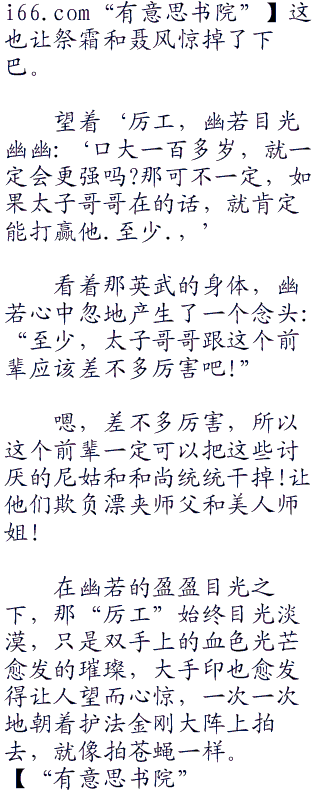 i66.com“有意思书院”】这
也让祭霜和聂风惊掉了下
巴。
望着‘厉工，幽若目光
幽幽:‘口大一百多岁，就一
定会更强吗?那可不一定，如
果太子哥哥在的话，就肯定
能打赢他.至少.，’
看着那英武的身体，幽
若心中忽地产生了一个念头:
“至少，太子哥哥跟这个前
辈应该差不多厉害吧!”
嗯，差不多厉害，所以
这个前辈一定可以把这些讨
厌的尼姑和和尚统统干掉!让
他们欺负漂夹师父和美人师
姐!
在幽若的盈盈目光之
下，那“厉工”始终目光淡
漠，只是双手上的血色光芒
愈发的璀璨，大手印也愈发
得让人望而心惊，一次一次
地朝着护法金刚大阵上拍
去，就像拍苍蝇一样。
【“有意思书院”